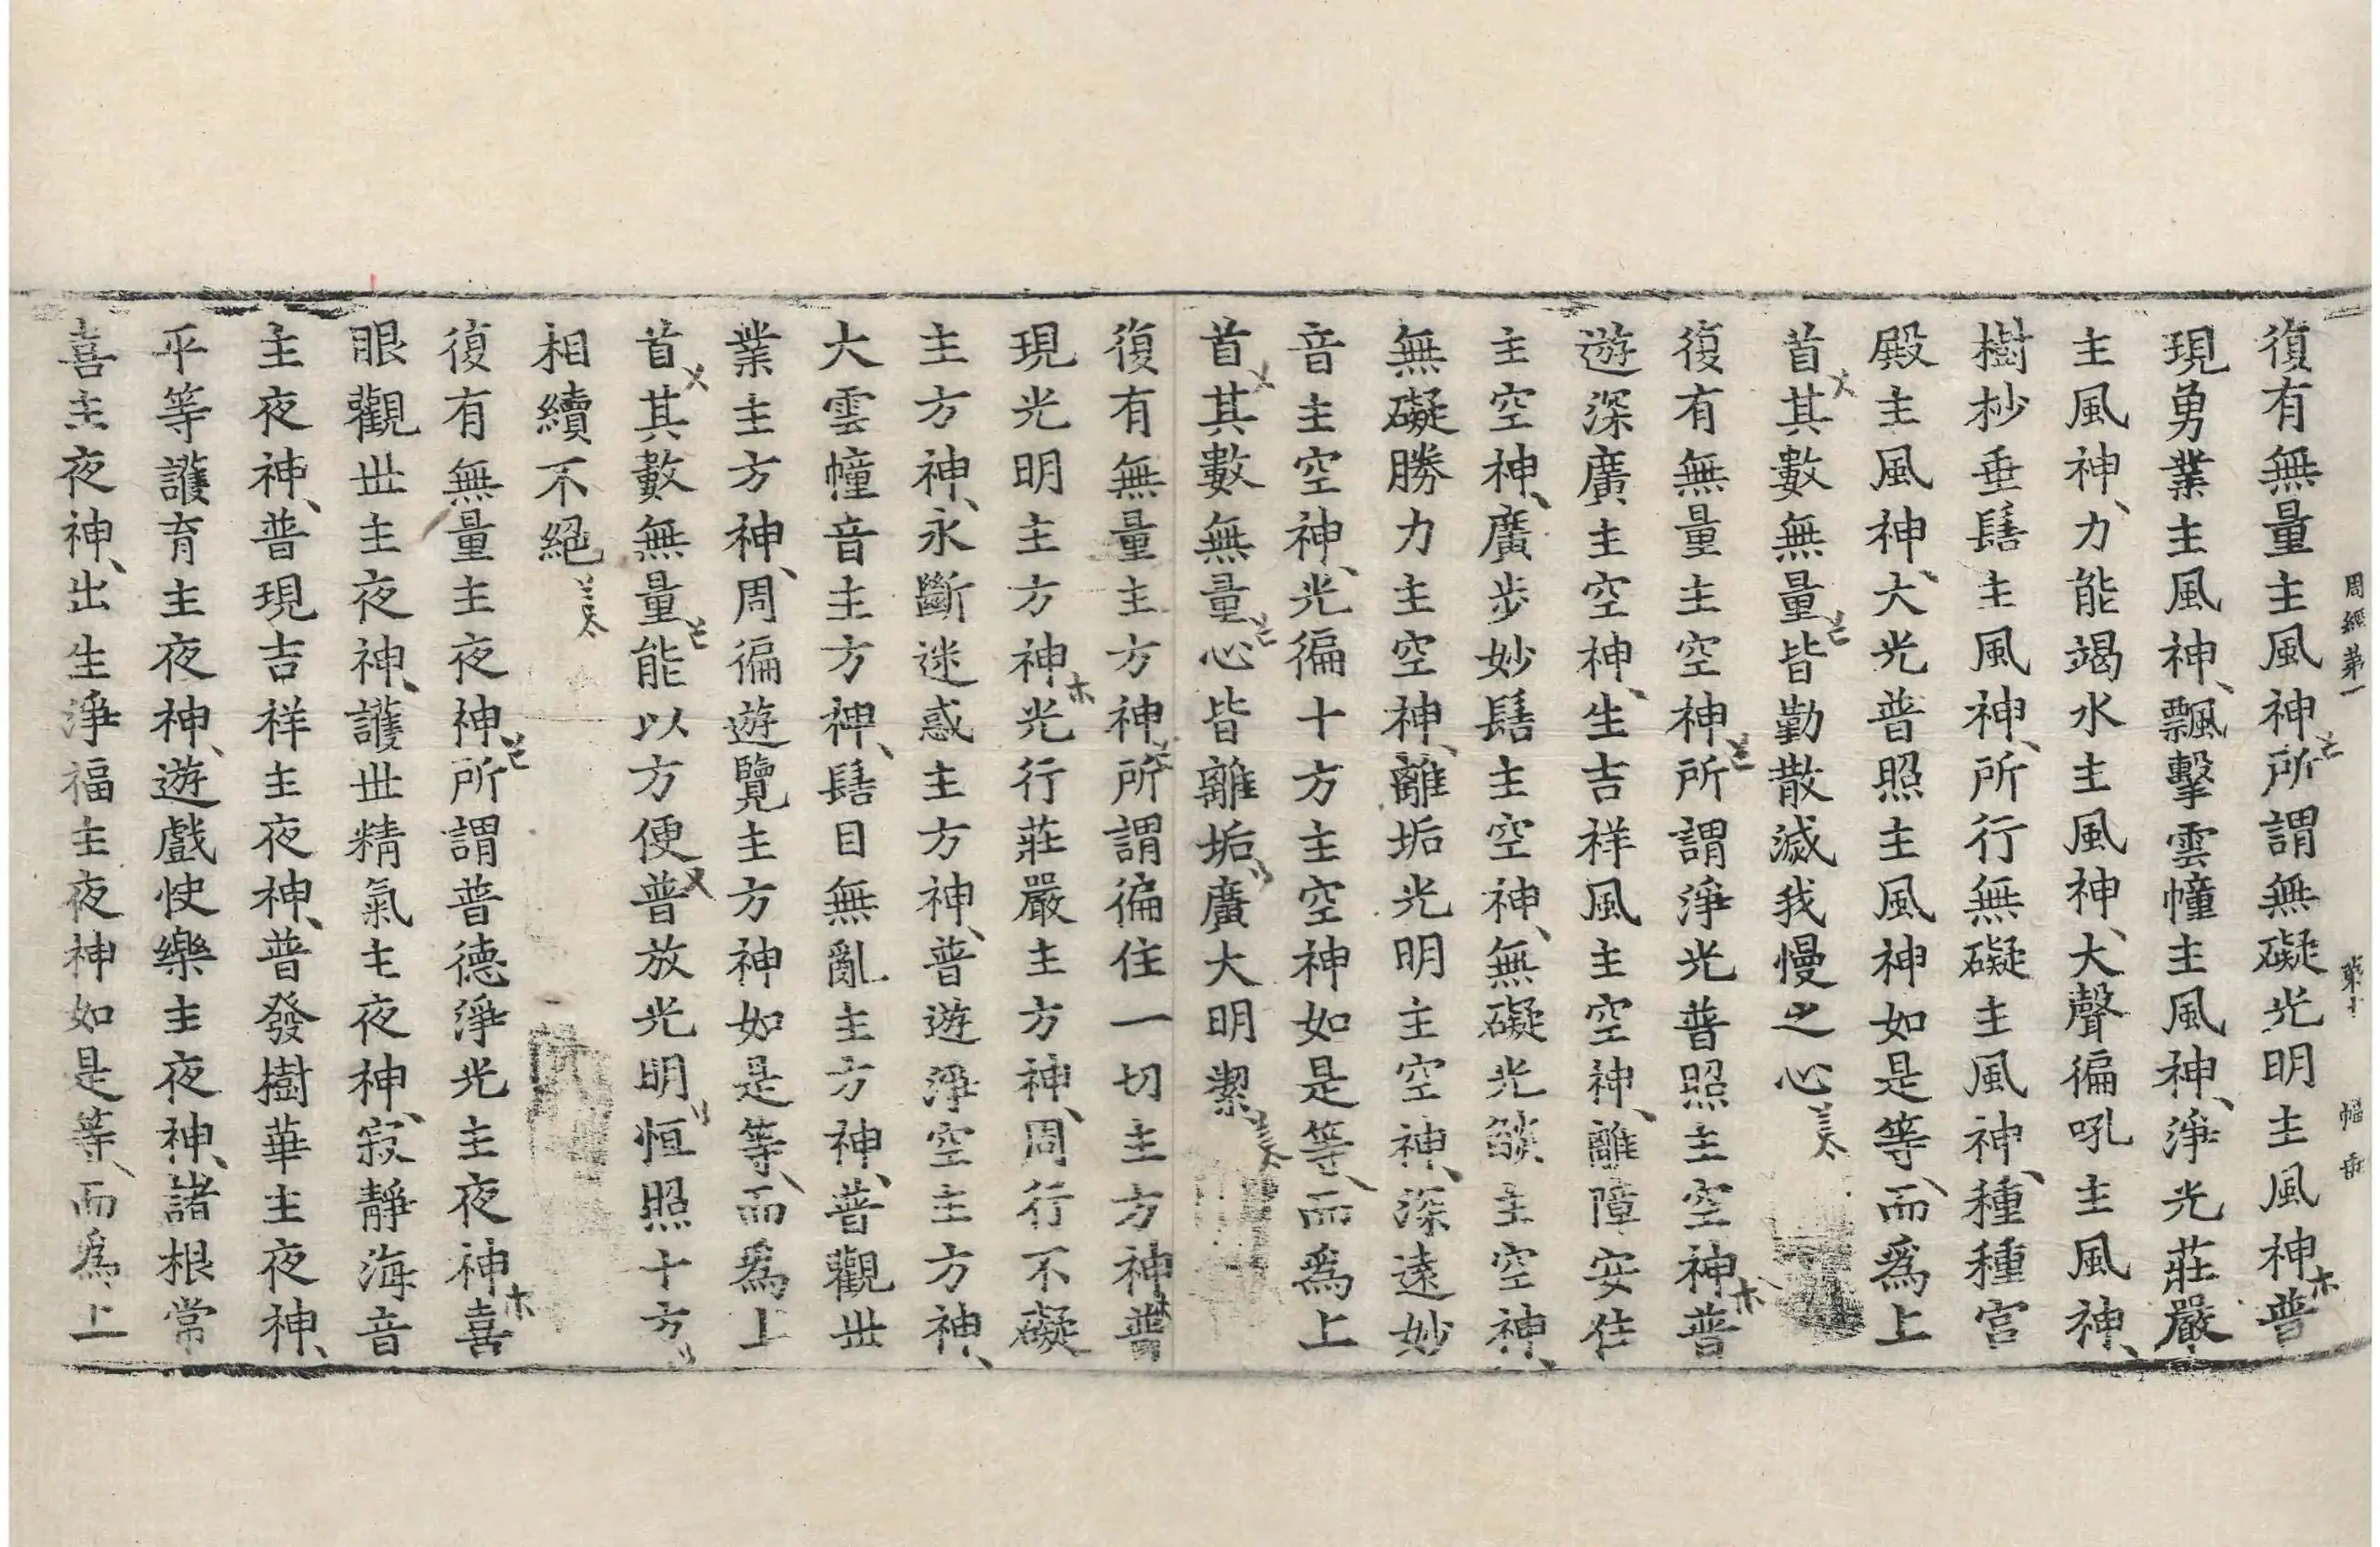 周經第一 第十 幅 垂
復有無量主風神所謂無礙光明主風神普
現勇業主風神飄擊雲幢主風神淨光莊嚴
主風神力能竭水主風神大聲徧吼主風神
樹杪垂髻主風神所行無礙主風神種種宮
殿主風神大光普照主風神如是等而爲上
首其數無量皆勤散滅我慢之心
復有無量主空神所謂淨光普照主空神普
遊深廣主空神生吉祥風主空神離障安住
主空神廣步妙髻主空神無礙光㷿主空神
無礙勝力主空神離垢光明主空神深遠妙
音主空神光徧十方主空神如是等而爲上
首其數無量心皆離垢廣大明潔
復有無量主方神所謂徧住一切主方神普
現光明主方神光行莊嚴主方神周行不礙
主方神永斷迷惑主方神普遊淨空主方神
大雲幢音主方神髻目無亂主方神普觀丗
業主方神周徧遊覽主方神如是等而爲上
首其數無量能以方便普放光明恒照十方
相續不絕
復有無量主夜神所謂普德淨光主夜神喜
眼觀丗主夜神護丗精氣主夜神寂靜海音
主夜神普現吉祥主夜神普發樹華主夜神
平等護育主夜神遊戲快樂主夜神諸根常
喜主夜神出生淨福主夜神如是等而爲上